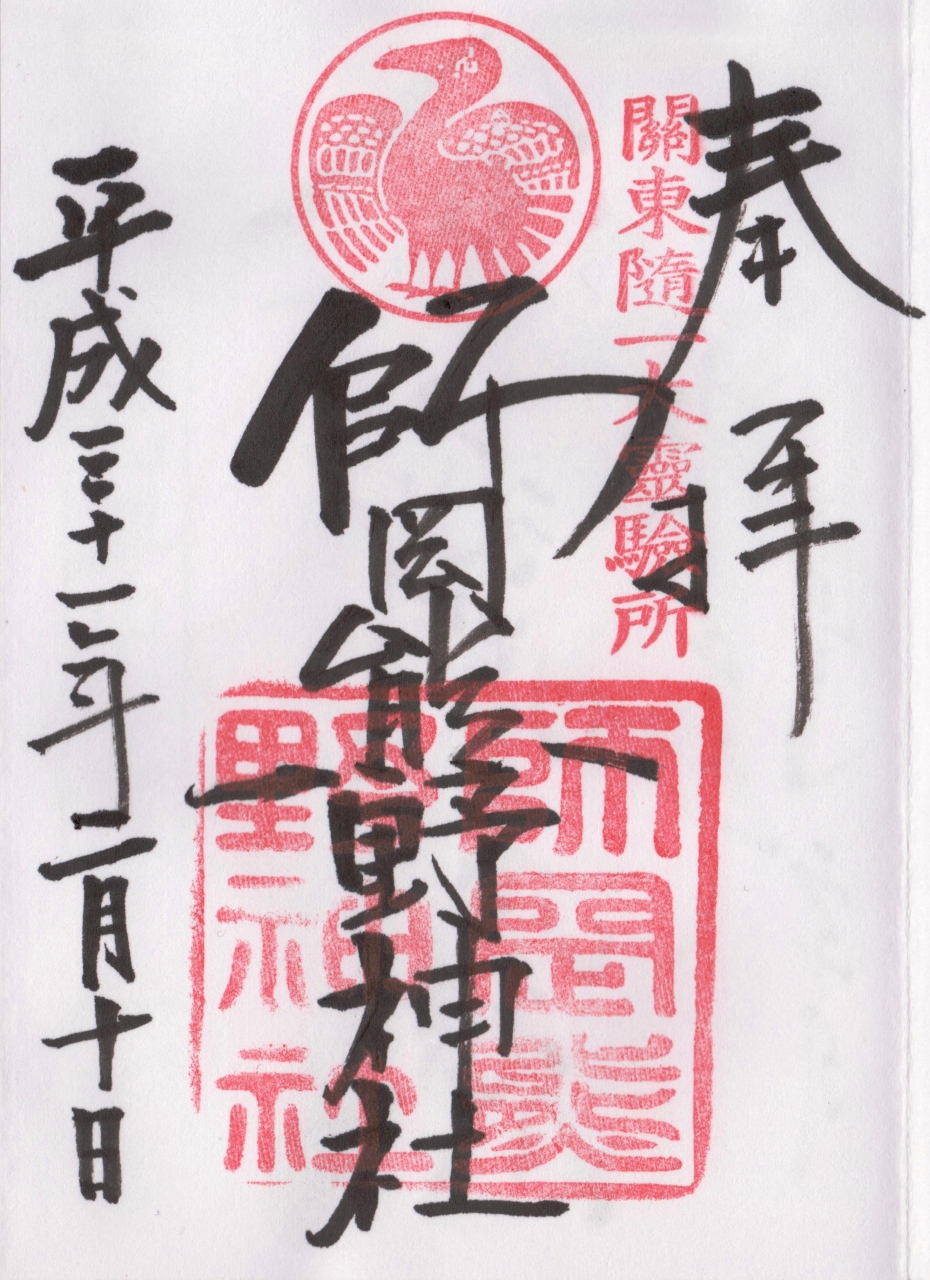 奉拝
關東隨一大靈驗所
師岡熊野神社
師岡熊野神社
平成三十一年二月十日